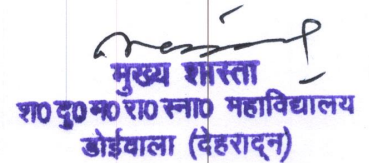 मुख्य शास्ता
श० दु० म० रा० स्ना० महाविद्यालय
डोईवाला (देहरादून)